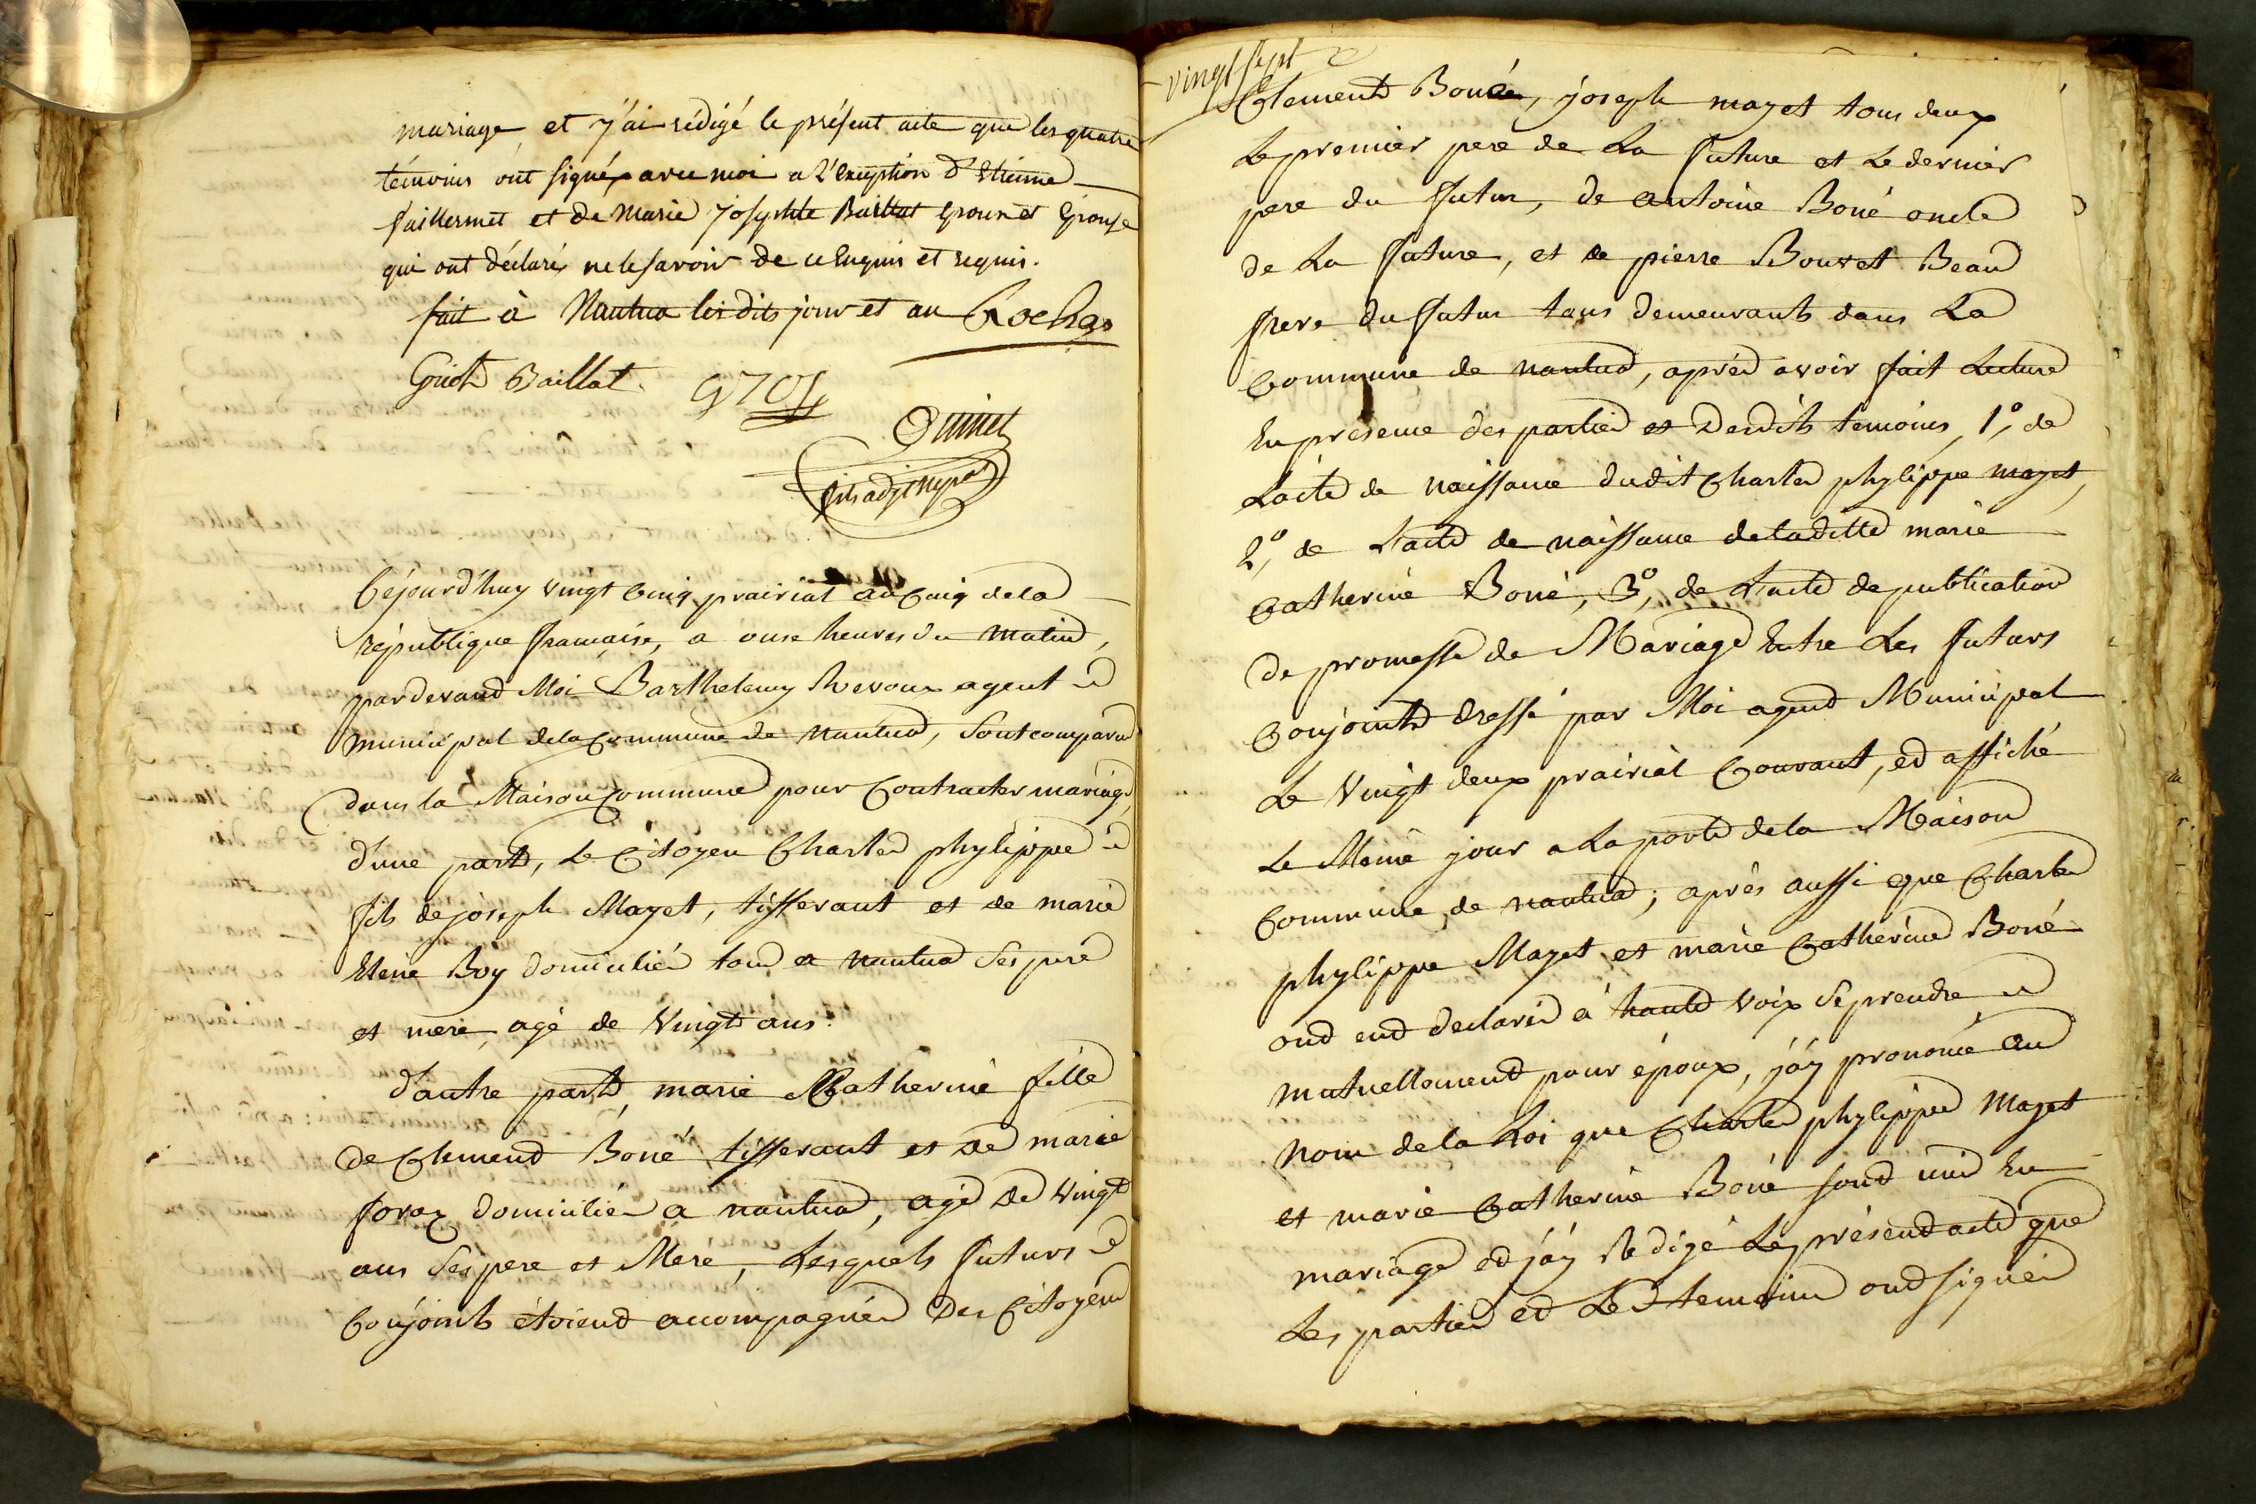 mariage et j'ai rédigé le présent acte que les quatre
témoins ont signéx avec moi a l'exception d'Etienne
faillermet et de Marie Josephte Baillat Epoux et Epouse
qui ont déclaréx ne le savoir de ce Enquis et requis.
fait à Nantua les dits jour et an Rochas
Baillat
Quinet
Cejourd'huy vingt Cinq prairial an Cinq dela
république française, a onse heures du matind,
pardevand Moi Barthelemy Revoux agent
municipal dela Commune de nantua, Sont comparus
dans la Maison Commune pour Contracter mariage,
d'une part, Le Citoyen Charles phylippe
fils de joseph Mayet, tisserant et de marie
Elene Boy domicilies tous a nantua Ses pere
et mere, agé de Vingt ans.
d'autre part, marie Catherine fille
de Clement Boné tisserant et de marie
foray domicilies a nantua, agé de Vingt
ans Ses pere et Mere, Lesquels futurs
Conjoints étoient acompagnés des Citoyens
vingt sept
Clement Boné, joseph mayet tous deux
Le premier pere de La future et Le dernier
pere du futur, de antoine Boné oncle
de La future, et de pierre Bouvet Beau
frere du futur tous demeurants dans La
Commune de nantua, après avoir fait Lecture
En presence des parties et desdits temoins, 1º, de
Lacte de naissance dudit Charles phylippe mayet,
2º, de Lacte de naissance deladitte marie
Catherine Boné, 3º, de Lacte de publication
de promesse de Mariage Entre Les futurs
Conjoints dressé par Moi agend Municipal
Le Vingt deux prairial Courant, ed affiché
Le Meme jour a La porte dela Maison
Commune de nantua; après aussi que Charles
phylippe Mayet et marie Catherine Boné
ond eud declaré à haute Voix Se prendre
mutuellement pour époux, j'ay prononcé au
nom dela Loi que Charles phylippe Mayet
et marie Catherine Boné sond unis En
mariage ed j'ay Redigé Le présend acte que
Les parties ed Les temoins ond signés